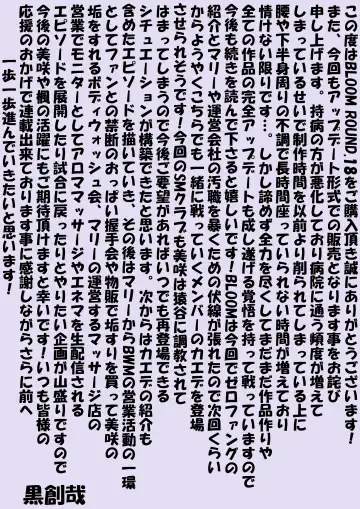 この度はBLOOM ROUND.18をご購入頂き誠にありがとうございます!
また、今回もアップデート形式での販売となります事をお詫び
申し上げます。持病の方が悪化しており病院に通う頻度が増えて
しまっているせいで制作時間を以前より削られてしまっている上に
腰や下半身周りの不調で長時間座っていられない時間が増えており
情けない限りです…。しかし諦めず全力を尽くしてまだまだ作品作りや
全ての作品の完全アップデートも成し遂げる覚悟を持って戦っていますので
今後も続きを読んで下さると嬉しいです!BLOOMは今回でゼロファングの
紹介とマリーや運営会社の汚職を暴くための伏線が張れたので次回くらい
からようやくこちらでも一緒に戦っていくメンバーのカエデを登場
させられそうです!今回のSMクラブも美咲は猿谷に調教されて
はまってしまうので今後ご要望があればいつでも再登場できる
シチュエーションが構築できたと思います。次からはカエデの紹介も
含めたエピソードを描いていき、その後はマリーからBWMの営業活動の一環
としてファンとの禁断のおっぱい握手会や物販で垢すりを買って美咲の
垢をすれるボディウォッシュ会、マリーの運営するマッサージ店の
営業でモニターとしてアロママッサージやエネマを生配信される
エピソードを展開したり試合に戻ったりとやりたい企画が山盛りですので
今後の美咲や楓の活躍にもご期待頂けますと幸いです!いつも皆様の
応援のおかげで連載出来ております事に感謝しながらさらに前へ
一歩一歩進んでいきたいと思います!
黒創哉